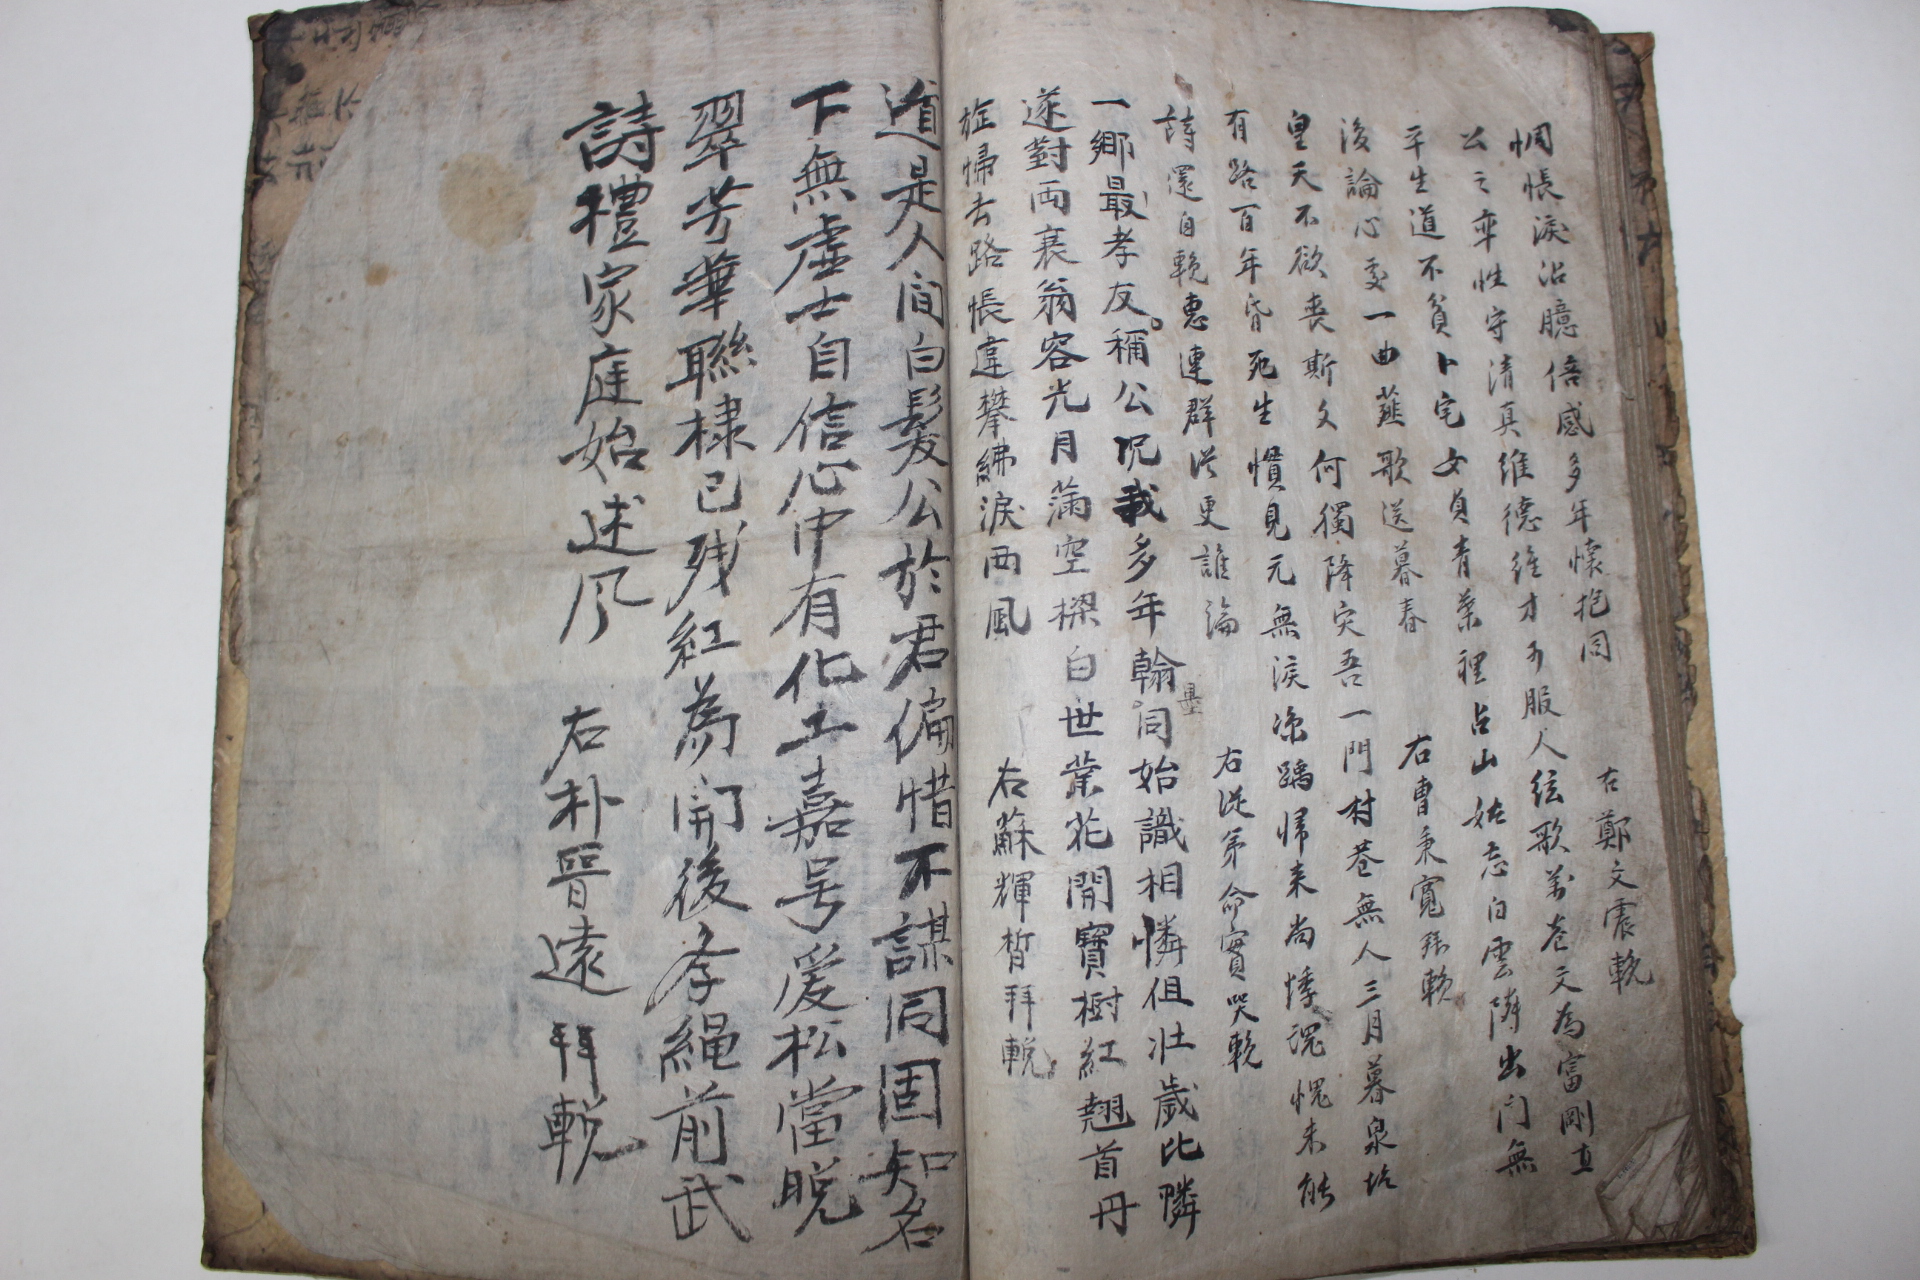 惆悵淚沾臆倍感多年懷抱同
右鄭文震輓
公之率性守清真維德維才可服人絃歌萬卷文為富剛直
平生道不貧卜宅女貞青葉裡占山姑忘白雲隣出門無
後論心處一曲薤歌送暮春
右曺秉寬拜輓
皇天不欲喪斯文何獨降灾吾一門村巷無人三月暮泉坮
有路百年昏死生慣見元無淚凉踽歸来尚悸魂愧未能
詩還自輓惠連群從更誰論
右從弟命實哭輓
一鄉最孝友稱公况我多年翰墨同始識相憐但壯歲比隣
遂對両衰翁容光月滿空樑白世業花開寶樹紅翹首丹
旌歸去路悵違攀紼淚西風
右蘇輝晳拜輓
道是人間白髮公於君偏惜不謀同固知名
下無虛士自信心中有化工嘉号爰松當晩
翠芳華聯棣已残紅為開後孝繩前武
詩禮家庭始述风
右朴晉遠拜輓